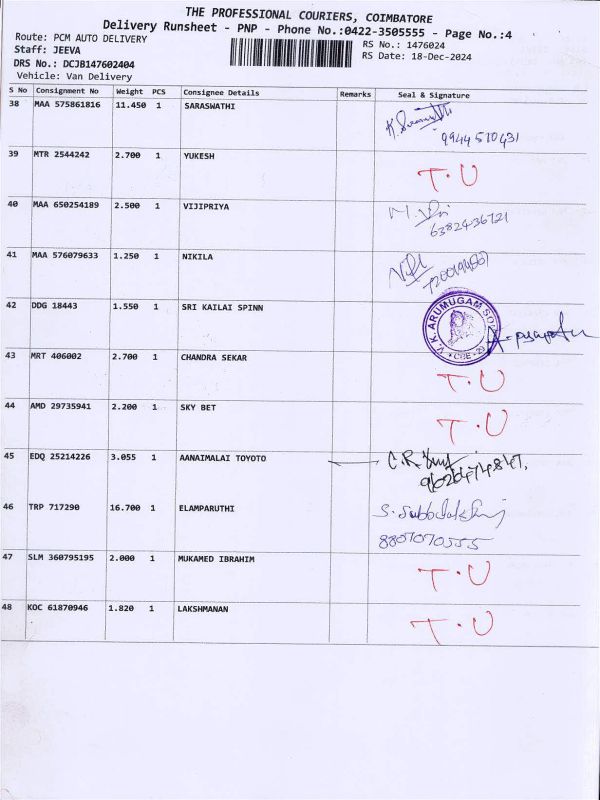 THE PROFESSIONAL COURIERS, COIMBATORE
Delivery Runsheet - PNP - Phone No.:0422-3505555 - Page No.:4
Route: PCM AUTO DELIVERY
RS No.: 1476024
Staff: JEEVA
RS Date: 18-Dec-2024
DRS No.: DCJB147602404
Vehicle: Van Delivery
S No Consignment No Weight PCS Consignee Details Remarks Seal & Signature
38 MAA 575861816 11.450 1 SARASWATHI
9944510431
39 MTR 2544242 2.700 1 YUKESH T.U
40 MAA 650254189 2.500 1 VIJIPRIYA
6382436721
41 MAA 576079633 1.250 1 NIKILA
42 DDG 18443 1.550 1 SRI KAILAI SPINN V.K.ARUMUGAM CBE
43 MRT 406002 2.700 1 CHANDRA SEKAR T.U
44 AMD 29735941 2.200 1 SKY BET T.U
45 EDQ 25214226 3.055 1 AANAIMALAI TOYOTO C.R.
46 TRP 717290 16.700 1 ELAMPARUTHI
8807070555
47 SLM 360795195 2.000 1 MUKAMED IBRAHIM T.U
48 KOC 61870946 1.820 1 LAKSHMANAN T.U